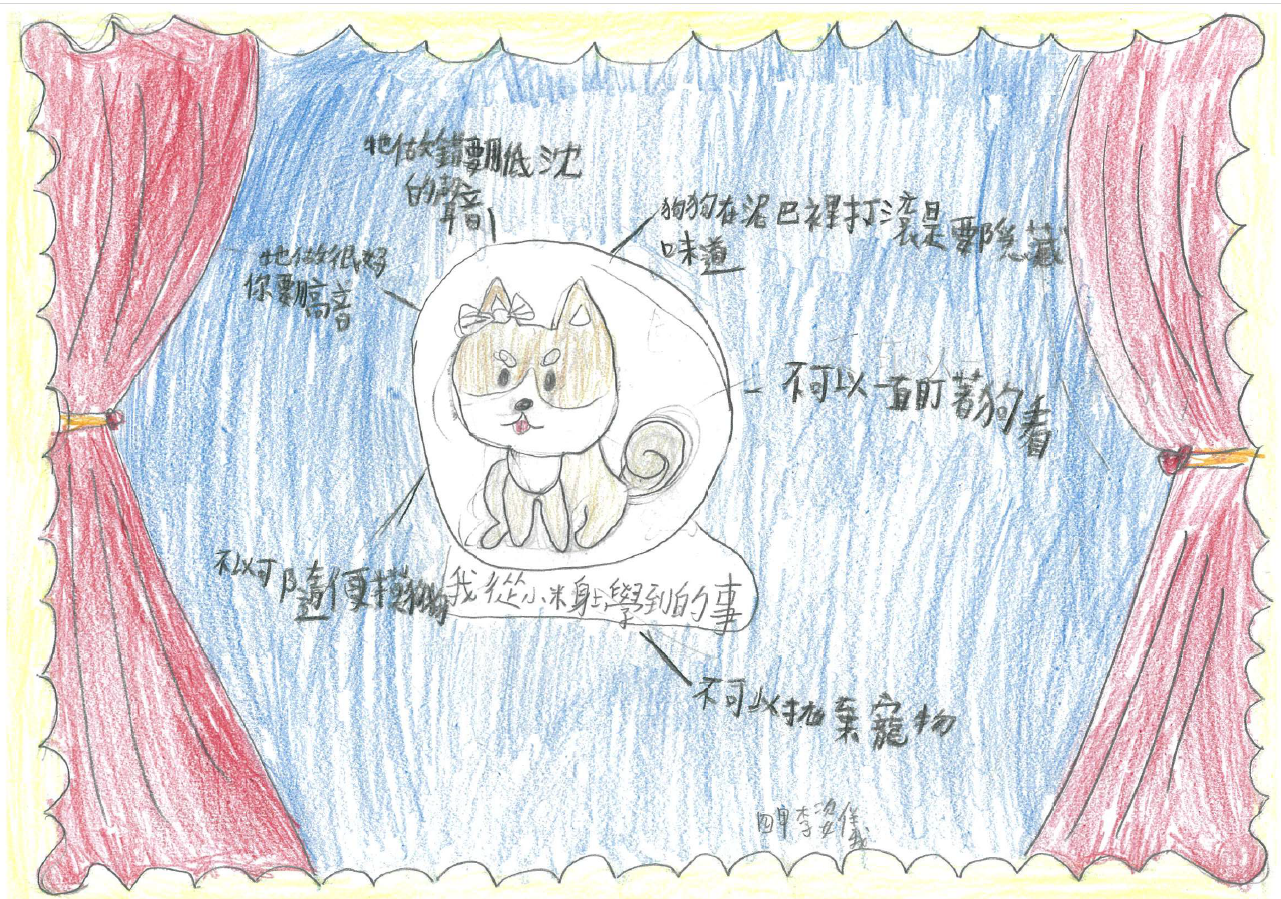 牠做錯要用低沈
的聲音
狗狗在泥巴裡打滾是要隱藏
味道
牠做很好
你要用高音
不可以一直盯著狗看
不可以隨便摸狗狗
我從小米身上學到的事
不可以拋棄寵物
李姿儀